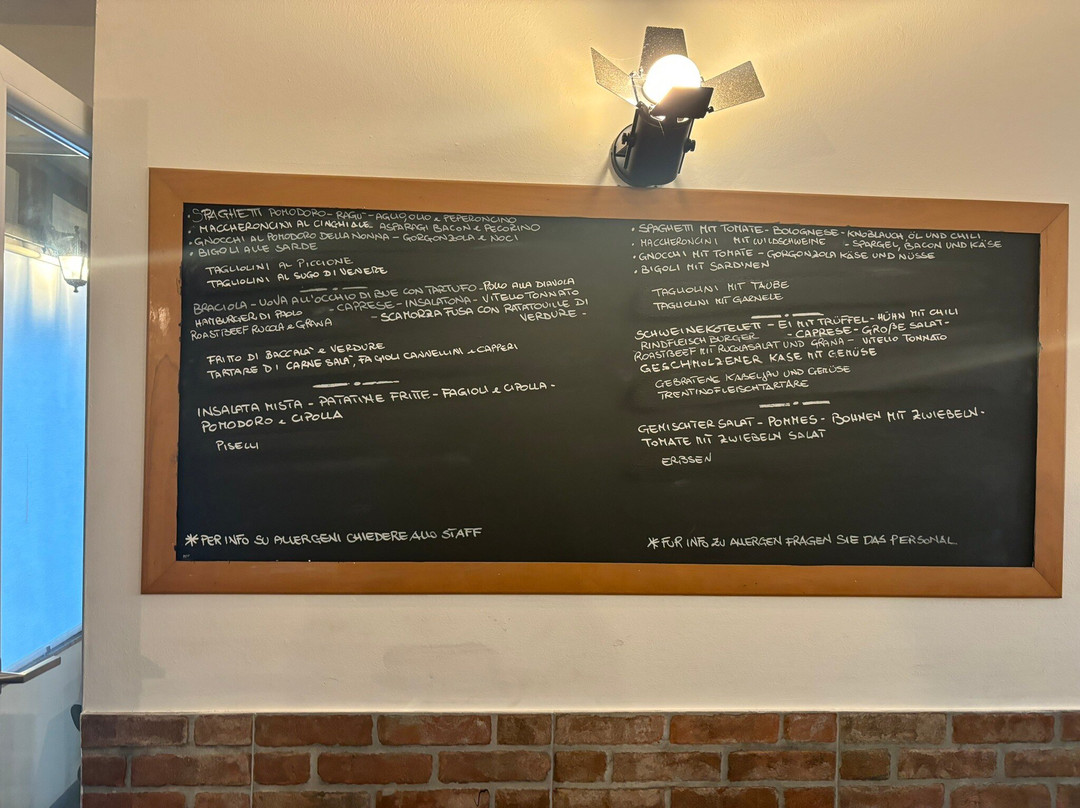 · SPAGHETTI POMODORO - RAGU' - AGLIO, OLIO e PEPERONCINO
· MACCHERONCINI AL CINGHIALE ASPARAGI BACON e PECORINO
· GNOCCHI AL POMODORO DELLA NONNA - GORGONZOLA e NOCI
· BIGOLI ALLE SARDE
TAGLIOLINI AL PICCIONE
TAGLIOLINI AL SUGO DI VENERE
BRACIOLA - UOVA ALL'OCCHIO DI BUE CON TARTUFO - POLLO ALLA DIAVOLA
HAMBURGER DI PAOLO - CAPRESE - INSALATONA - VITELLO TONNATO
ROASTBEEF RUCOLA e GRANA - SCAMORZA FUSA CON RATATOUILLE DI
VERDURE -
FRITTO DI BACCALA' e VERDURE
TARTARE DI CARNE SALA', FAGIOLI CANNELLINI e CAPPERI
INSALATA MISTA - PATATINE FRITTE - FAGIOLI e CIPOLLA -
POMODORO e CIPOLLA
PISELLI
* PER INFO SU ALLERGENI CHIEDERE ALLO STAFF
· SPAGHETTI MIT TOMATE - BOLOGNESE - KNOBLAUCH, ÖL UND CHILI
· MACCHERONCINI MIT WILDSCHWEINE - SPARGEL, BACON UND KÄSE
· GNOCCHI MIT TOMATE - GORGONZOLA KÄSE UND NÜSSE
· BIGOLI MIT SARDINEN
TAGLIOLINI MIT TAUBE
TAGLIOLINI MIT GARNELE
SCHWEINEKOTELETT - EI MIT TRÜFFEL - HÜHN MIT CHILI
RINDFLEISCH BURGER - CAPRESE - GROßE SALAT -
ROASTBEEF MIT RUCOLASALAT UND GRANA - VITELLO TONNATO
GESCHMOLZENER KASE MIT GEMÜSE
GEBRATENE KABELJAU UND GEMÜSE
TRENTINOFLEISCHTARTARE
GEMISCHTER SALAT - POMMES - BOHNEN MIT ZWIEBELN -
TOMATE MIT ZWIEBELN SALAT
ERBSEN
* FÜR INFO ZU ALLERGEN FRAGEN SIE DAS PERSONAL